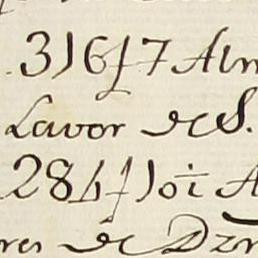 31617 Alm
Lavor de S.
284 101 A
res de Dzm